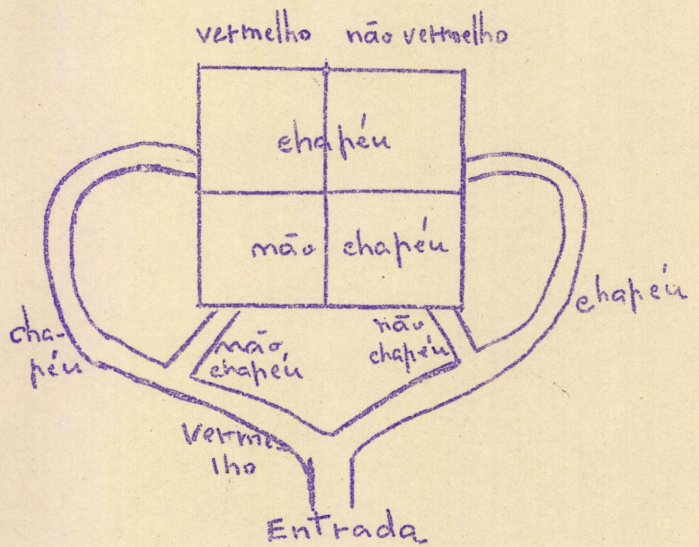 vermelho não vermelho
chapéu
não chapéu
cha-
péu
não
chapéu
não
chapéu
chapéu
Verme-
lho
Entrada